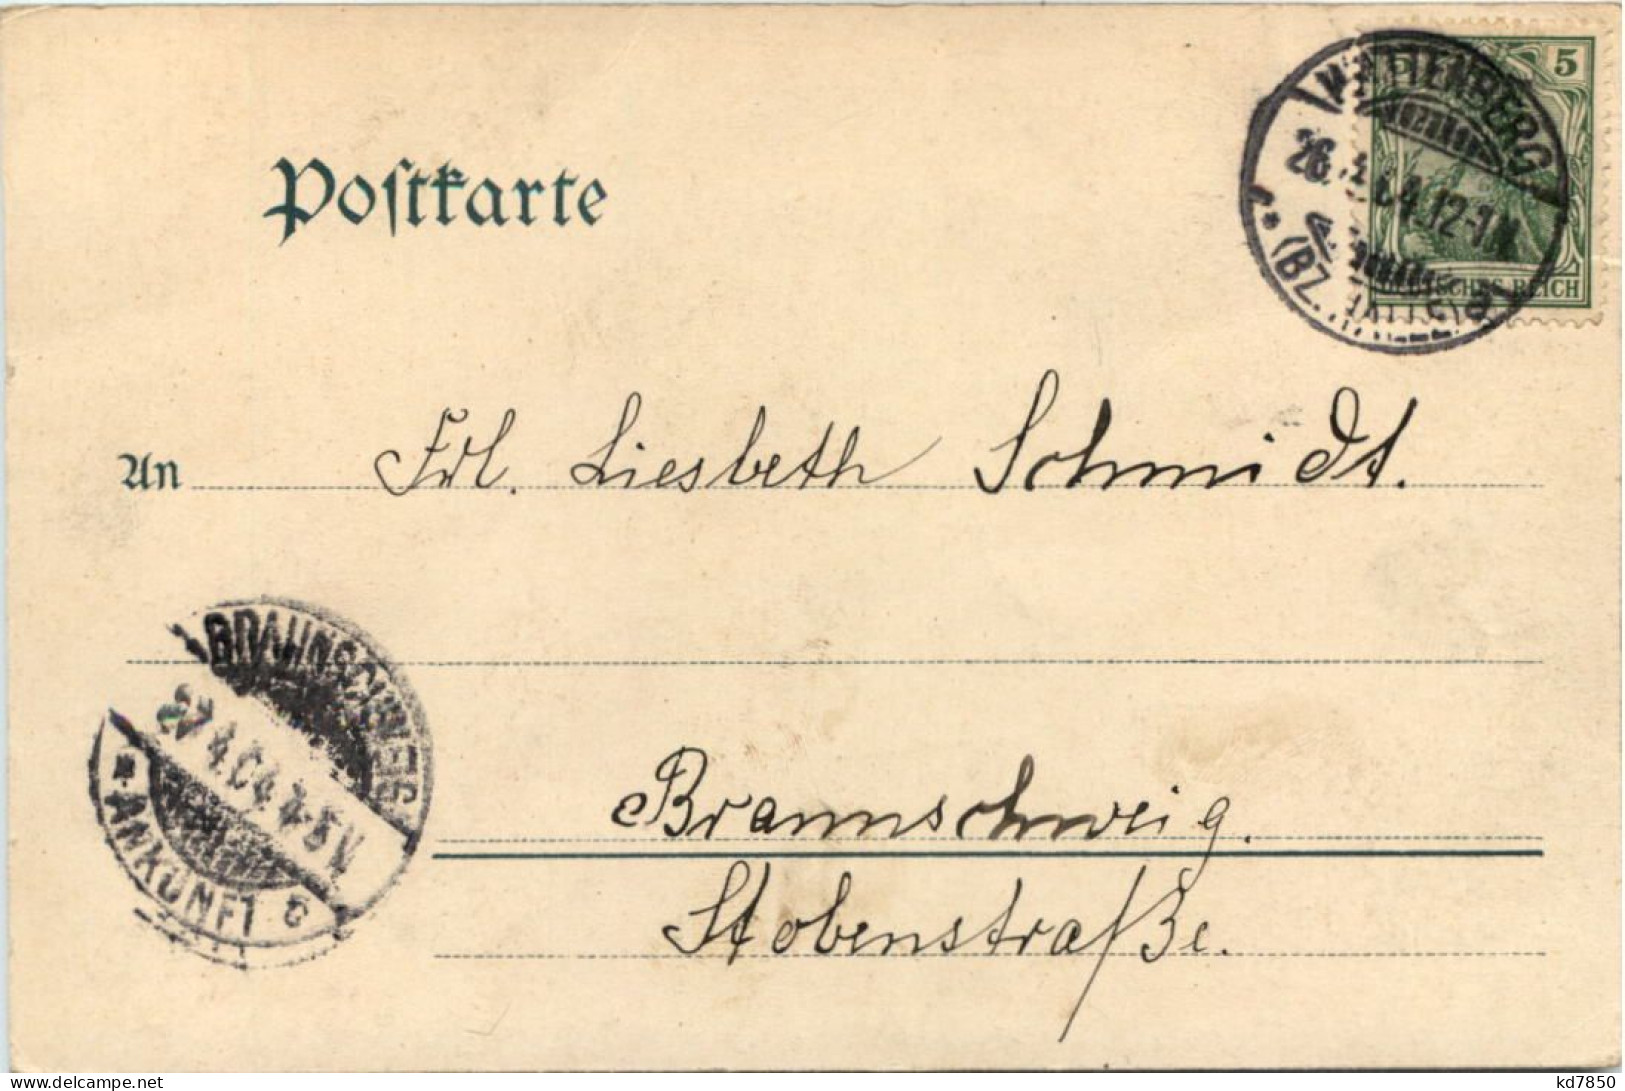 Postkarte
5
26. 4. 04. 12-1 N
(BZ. HALLE)
DEUTSCHES REICH
An Frl. Liesbeth Schmidt.
BRAUNSCHWEIG
27 4.04 4-5V
* ANKUNFT c
Braunschweig.
Stobenstraße.
www.delcampe.net
kd7850